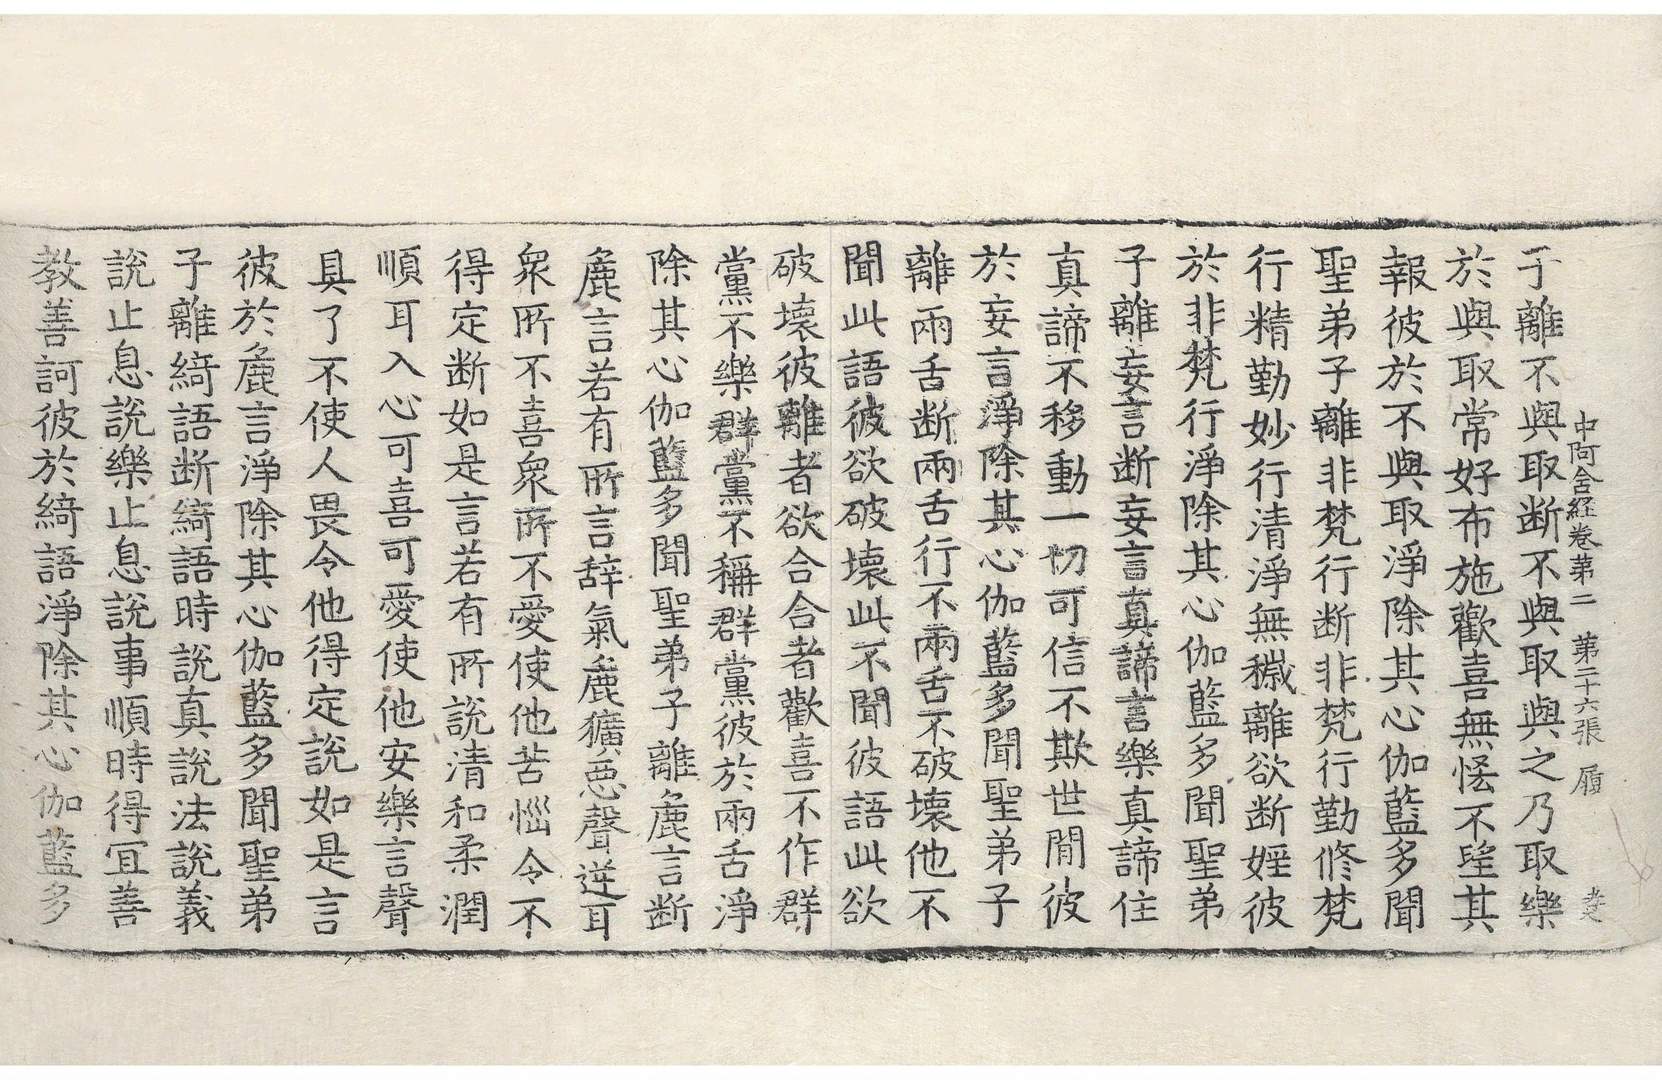 中阿含経卷第二 第二十六張 履
子離不與取断不與取與之乃取樂
於與取常好布施歡喜無悋不望其
報彼於不與取淨除其心伽藍多聞
聖弟子離非梵行断非梵行勤修梵
行精勤妙行清淨無穢離欲断婬彼
於非梵行淨除其心伽藍多聞聖弟
子離妄言断妄言真諦言樂真諦住
真諦不移動一切可信不欺世間彼
於妄言淨除其心伽藍多聞聖弟子
離兩舌断兩舌行不兩舌不破壞他不
聞此語彼欲破壞此不聞彼語此欲
破壞彼離者欲合合者歡喜不作群
黨不樂群黨不稱群黨彼於兩舌淨
除其心伽藍多聞聖弟子離麁言断
麁言若有所言辞氣麁獷惡聲逆耳
衆所不喜衆所不愛使他苦惱令不
得定断如是言若有所說清和柔潤
順耳入心可喜可愛使他安樂言聲
具了不使人畏令他得定說如是言
彼於麁言淨除其心伽藍多聞聖弟
子離綺語断綺語時說真說法說義
說止息說樂止息說事順時得冝善
教善訶彼於綺語淨除其心伽藍多